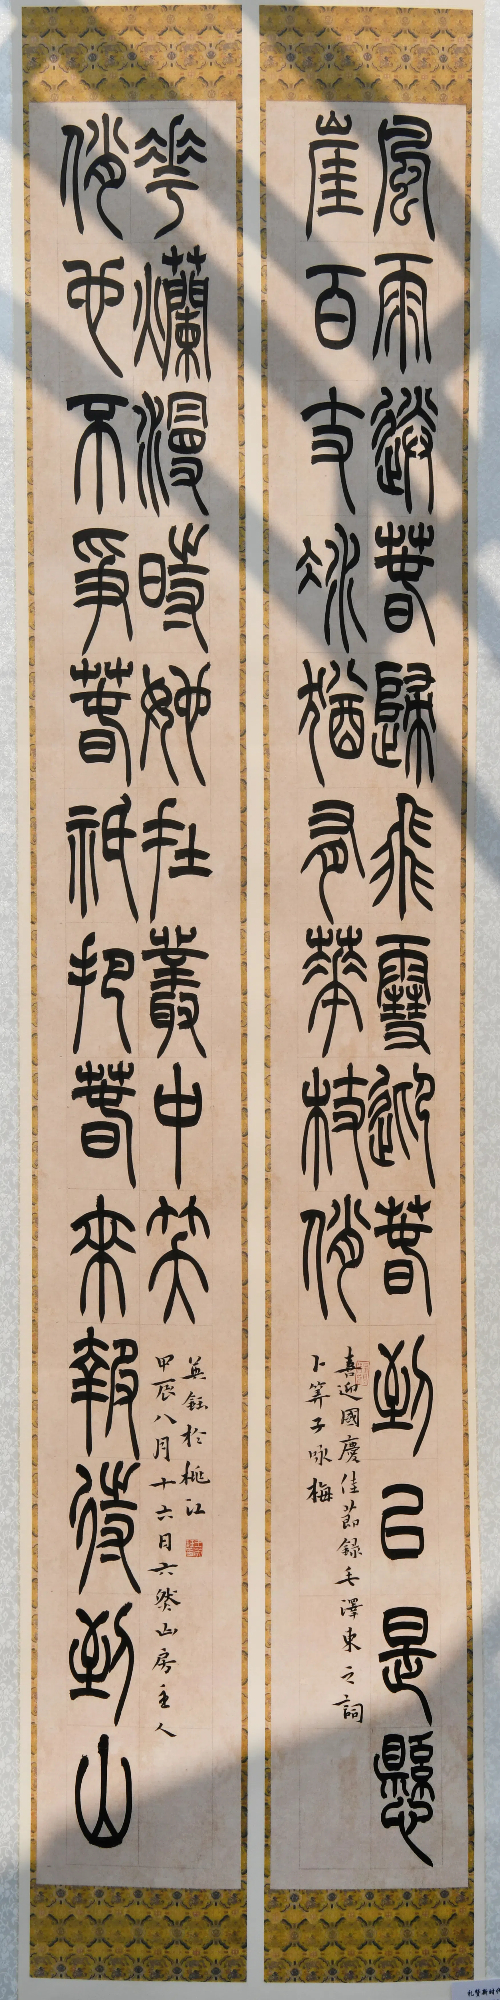 風雨送春歸飛雪迎春到已是懸
崖百丈冰猶有華枝俏
喜迎國慶佳節錄毛澤東之詞
卜算子咏梅
俏也不爭春祇把春來報待到山
花爛漫時她在叢中笑
甲辰八月十六日六然山房主人
英鈺於桃江
礼赞新时代